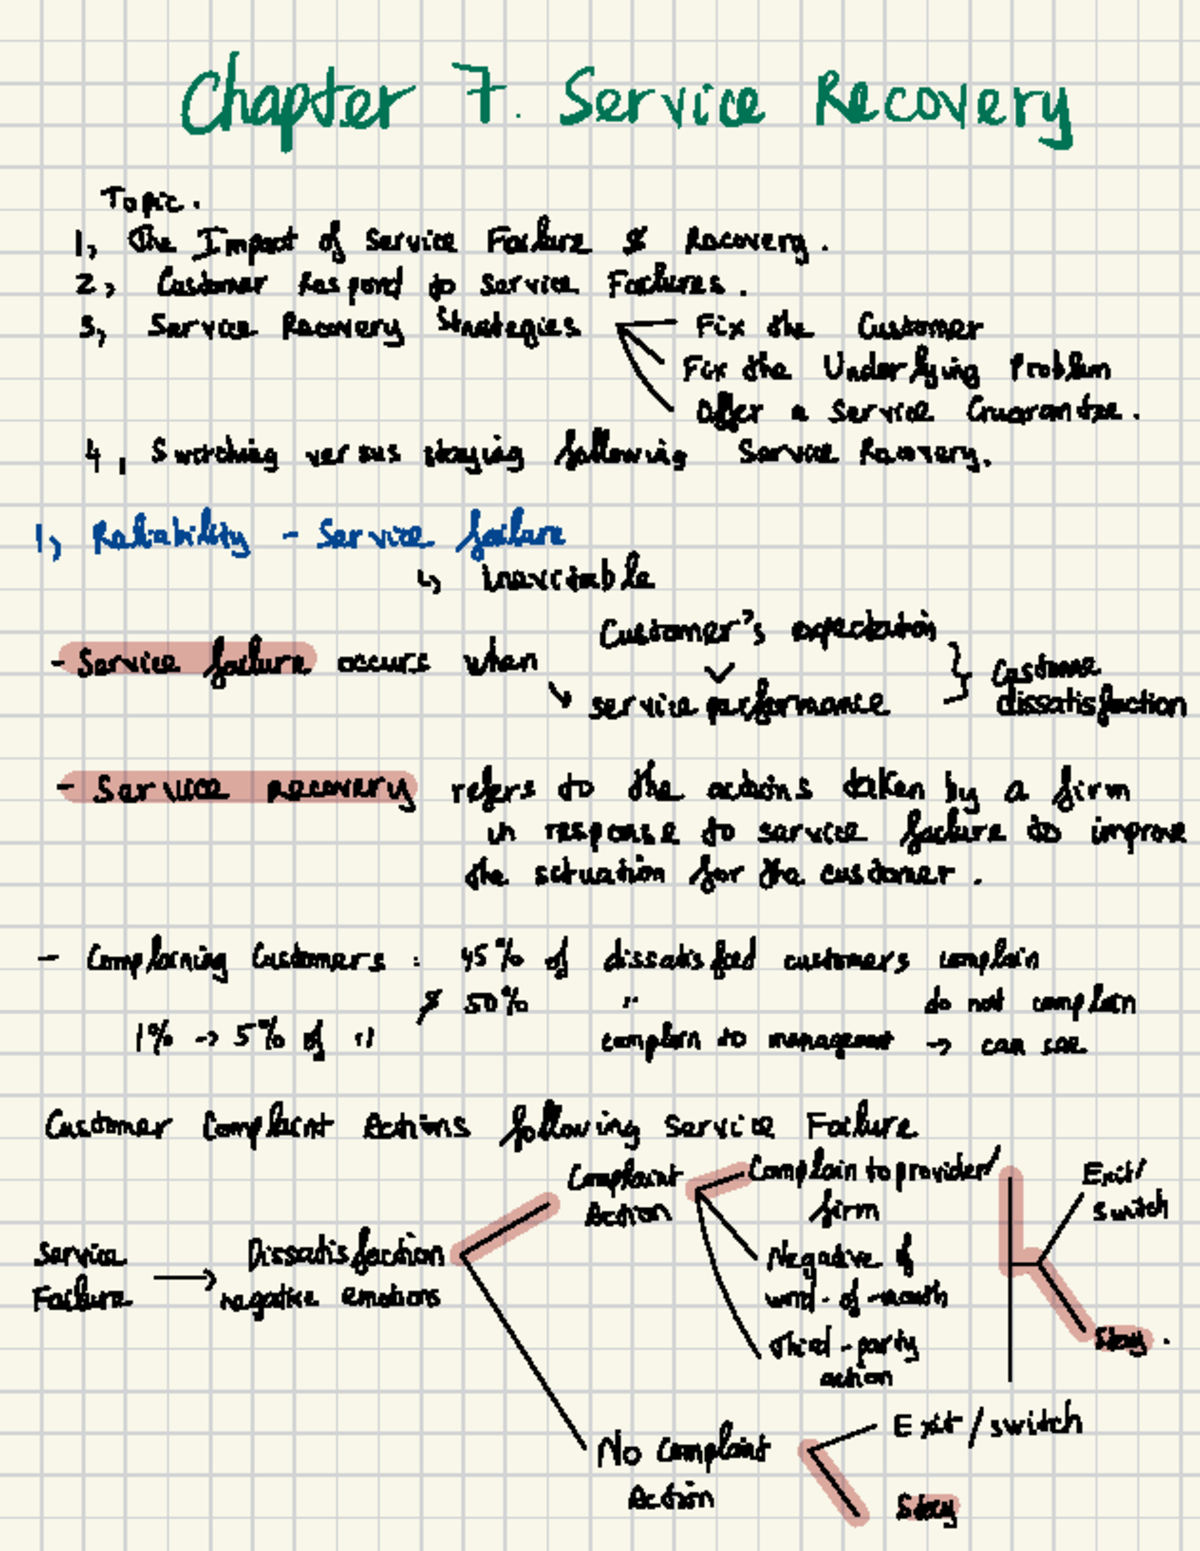 Chapter 7. Service Recovery
Topic.
1, The Impact of Service Failure & Recovery.
2, Customer Respond to Service Failures.
3, Service Recovery Strategies
Fix the Customer
Fix the Underlying Problem
Offer a Service Guarantee.
4, Switching versus staying following Service Recovery.
1, Reliability - Service failure
↳ inevitable
- Service failure occurs when
Customer's expectation
service performance
Customer
dissatisfaction
- Service recovery refers to the actions taken by a firm
in response to service failure to improve
the situation for the customer.
- Complaining Customers : 45% of dissatisfied customers complain
& 50% " do not complain
1% -> 5% of " complain to management -> can see
Customer Complaint Actions following Service Failure
Service
Failure
Dissatisfaction
negative emotions
Complaint
Action
Complain to provider/
firm
Negative of
word-of-mouth
Third-party
action
Exit/
switch
Stay.
No Complaint
Action
Exit/switch
Stay